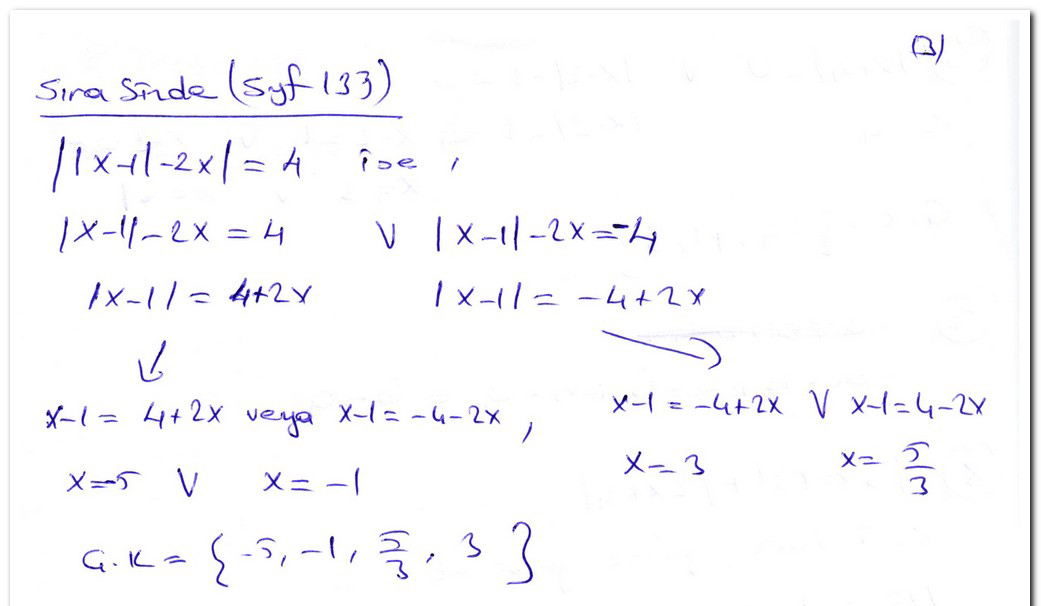 B)
Sıra Sizde (Syf 133)
||x-1|-2x| = 4 ise,
|x-1|-2x = 4 V |x-1|-2x=-4
|x-1| = 4+2x |x-1| = -4+2x
x-1 = 4+2x veya x-1=-4-2x, x-1=-4+2x V x-1=4-2x
x=-5 V x=-1 x=3 x=5/3
G.K = {-5, -1, 5/3, 3}